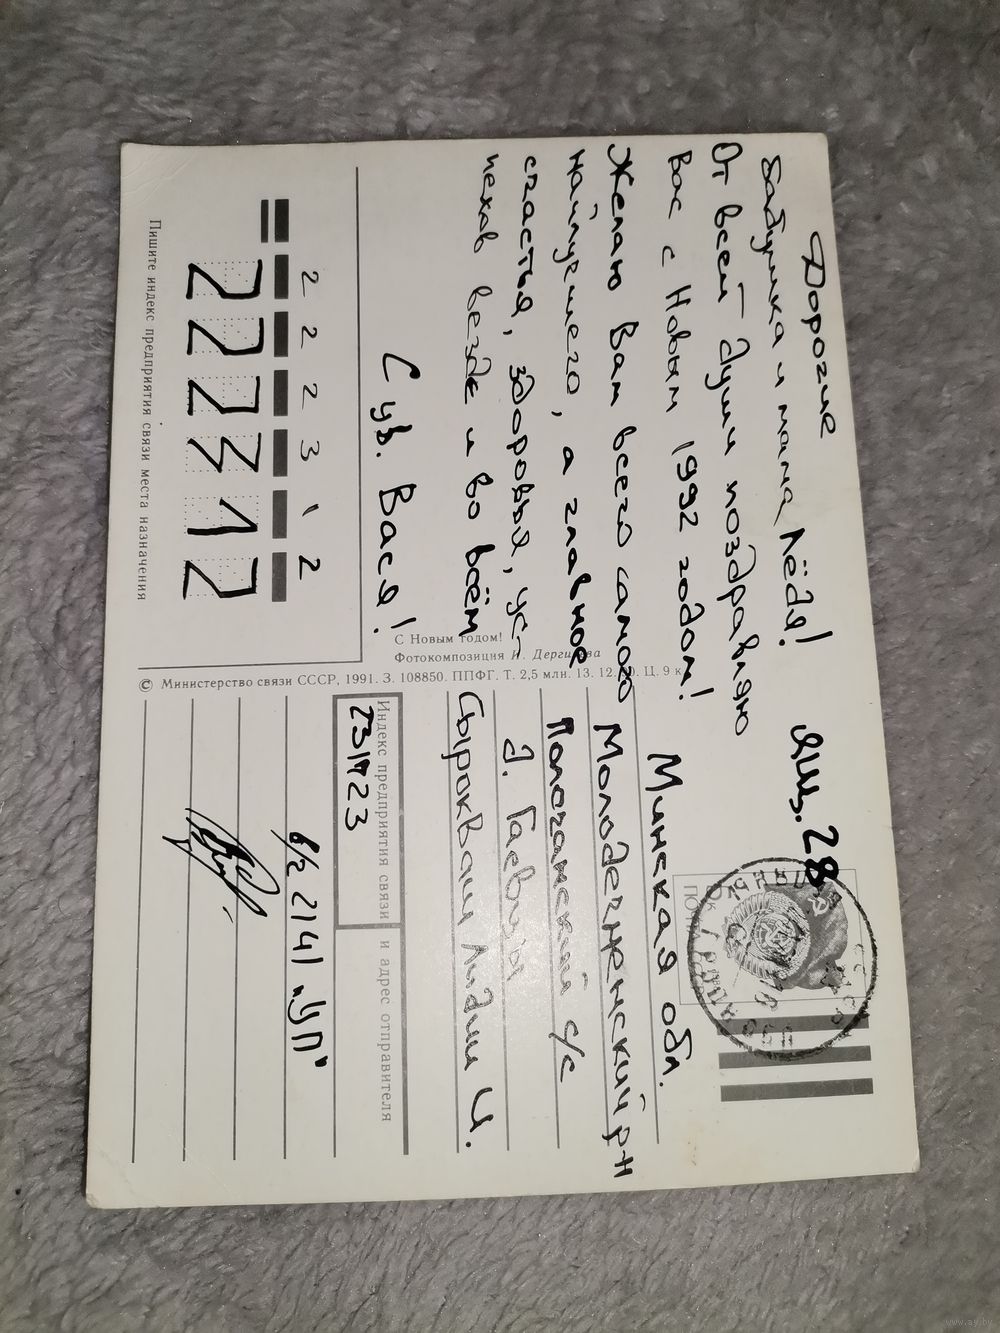 Дорогие
бабушка и мама Лёдя!
От всей души поздравляю
Вас с Новым 1992 годом!
Желаю Вам всего самого
найлучшего, а главное
счастья, здоровья, ус-
пехов везде и во всём
Сув. Вася!
С Новым годом!
Фотокомпозиция И. Дергилёва
© Министерство связи СССР, 1991. З. 108850. ППФГ. Т. 2,5 млн. 13. 12. 90. Ц. 9 к.
2 2 2 3 1 2
222312
Пишите индекс предприятия связи места назначения
ящ. 28
Минская обл.
Молодечненский р-н
Полочанский с/с
д. Гаевцы
Сыроквaш Лидии И.
Индекс предприятия связи и адрес отправителя
231723
в/ч 2141 "УП"
www.ay.by